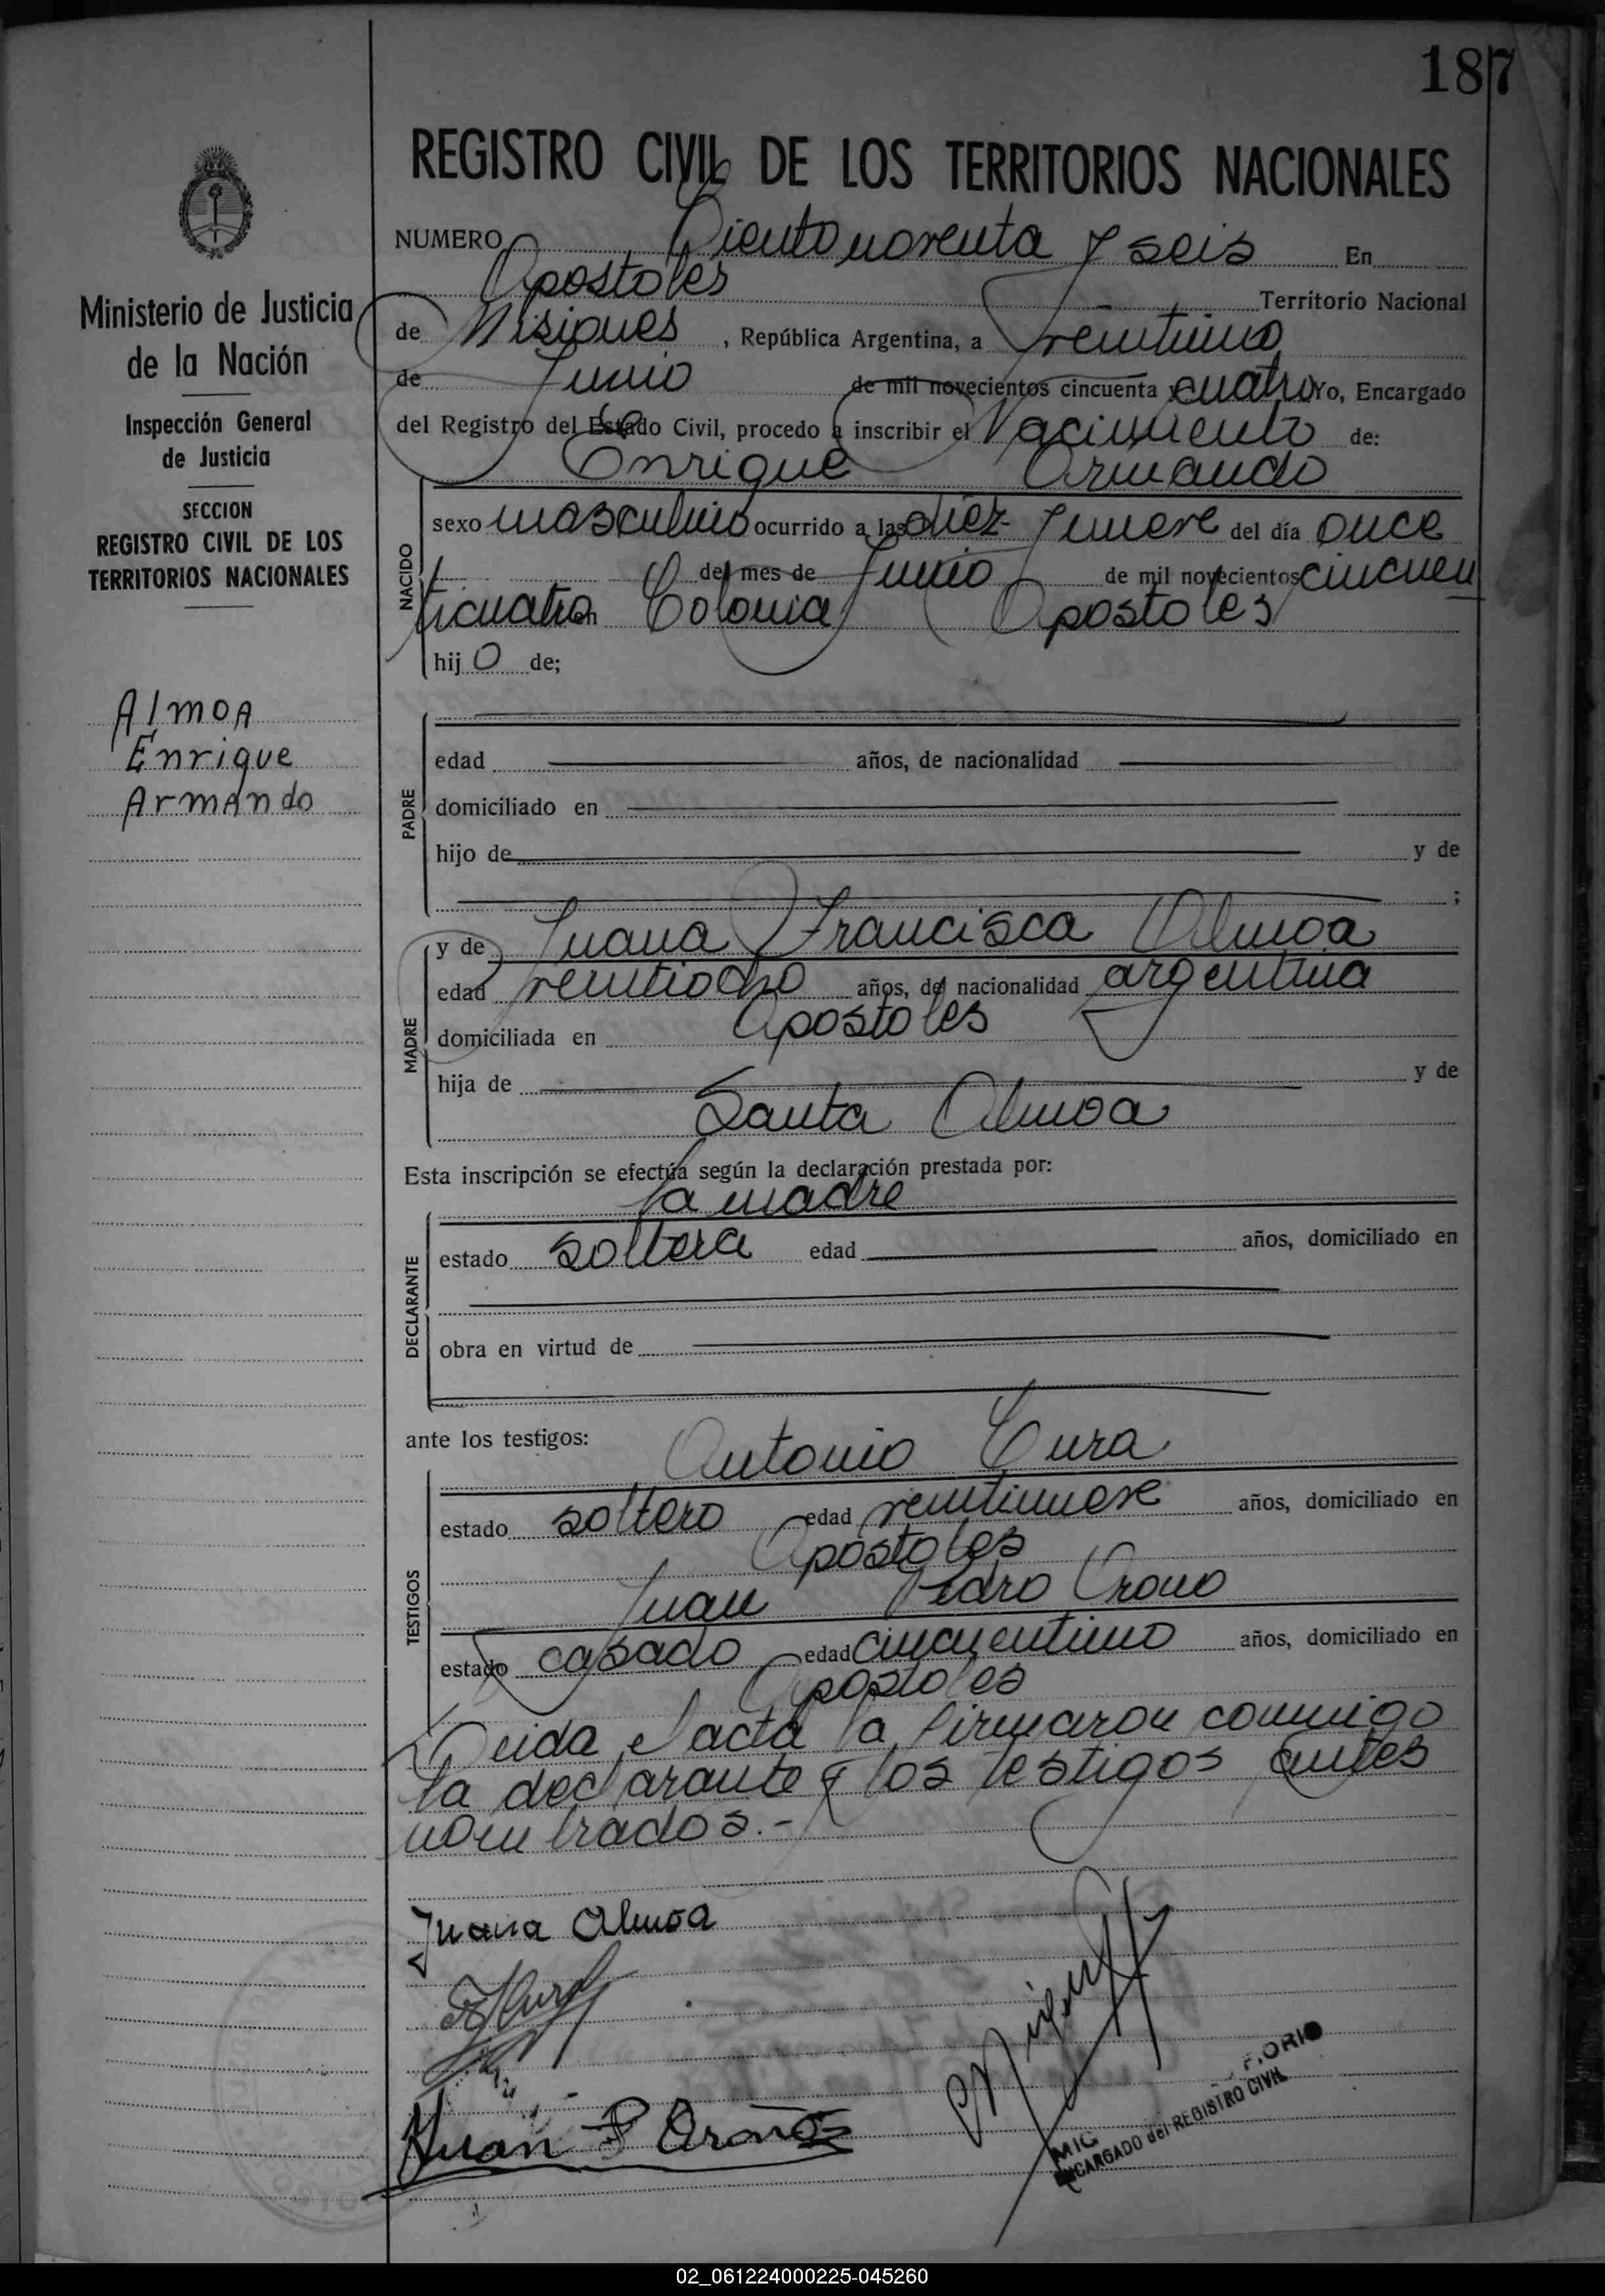 187
REGISTRO CIVIL DE LOS TERRITORIOS NACIONALES
NUMERO Ciento noventa y seis En
Apostoles Territorio Nacional
de Misiones, República Argentina, a veintiuno
de Junio de mil novecientos cincuenta y cuatro Yo, Encargado
del Registro del Estado Civil, procedo a inscribir el Nacimiento de:
Enrique Armando
NACIDO
sexo masculino ocurrido a las diez y nueve del día once
del mes de Junio de mil novecientos cincuen
ticuatro en Colonia Apostoles
hijo de;
PADRE
edad años, de nacionalidad
domiciliado en
hijo de y de
;
MADRE
y de Juana Francisca Almoa
edad veintiocho años, de nacionalidad argentina
domiciliada en Apostoles
hija de y de
Santa Almoa
Esta inscripción se efectúa según la declaración prestada por:
la madre
DECLARANTE
estado soltera edad años, domiciliado en
obra en virtud de
ante los testigos: Antonio Cura
TESTIGOS
estado soltero edad veintinueve años, domiciliado en
Apostoles
Juan Pedro
estado casado edad cincuentiuno años, domiciliado en
Apostoles
Leida el acta la firmaron conmigo
la declarante y los testigos antes
nombrados.-
Juana Almoa
Juan P
ENCARGADO del REGISTRO CIVIL
Ministerio de Justicia
de la Nación
Inspección General
de Justicia
SECCION
REGISTRO CIVIL DE LOS
TERRITORIOS NACIONALES
Almoa
Enrique
Armando
02_061224000225-045260